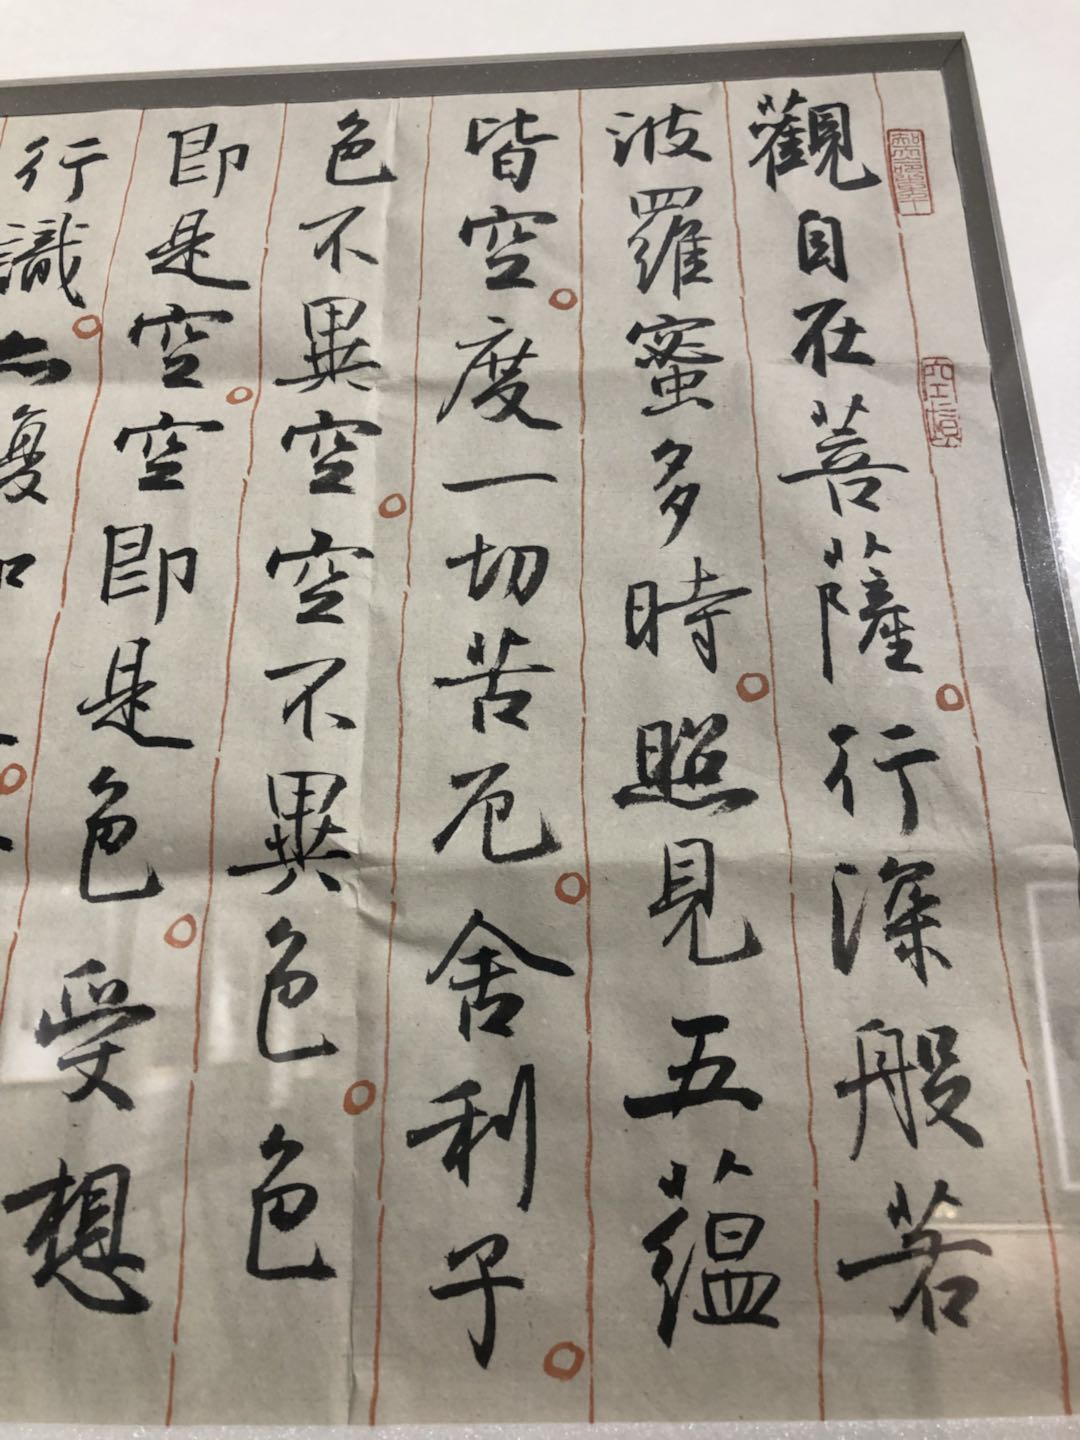 觀自在菩薩行深般若
波羅蜜多時照見五蘊
皆空度一切苦厄舍利子
色不異空空不異色色
即是空空即是色受想
行識亦復如